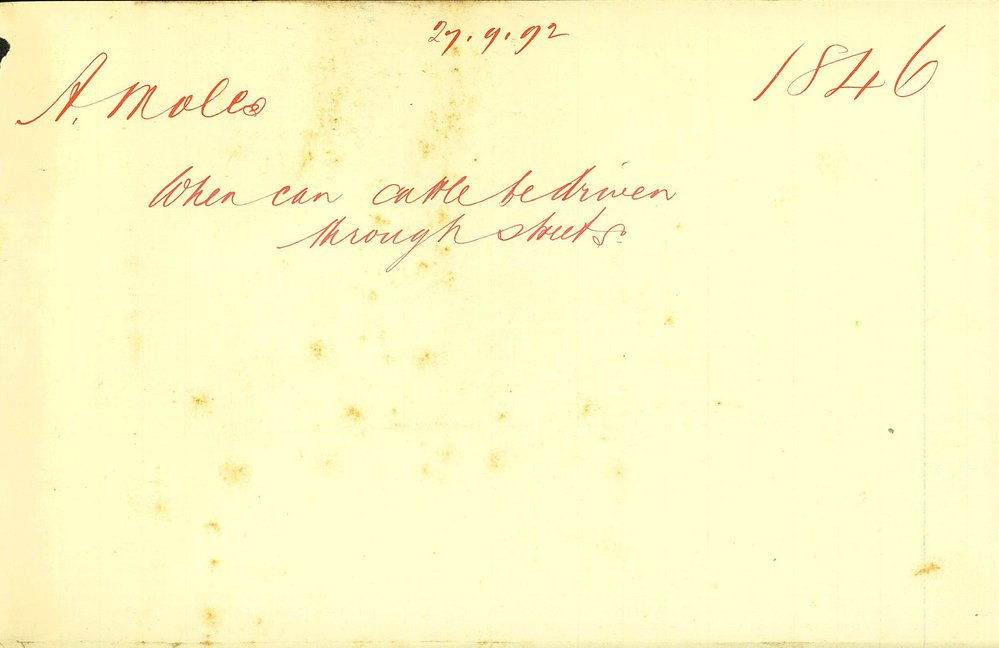 27.9.92
1846
A. Moles
When can cattle be driven
through streets.